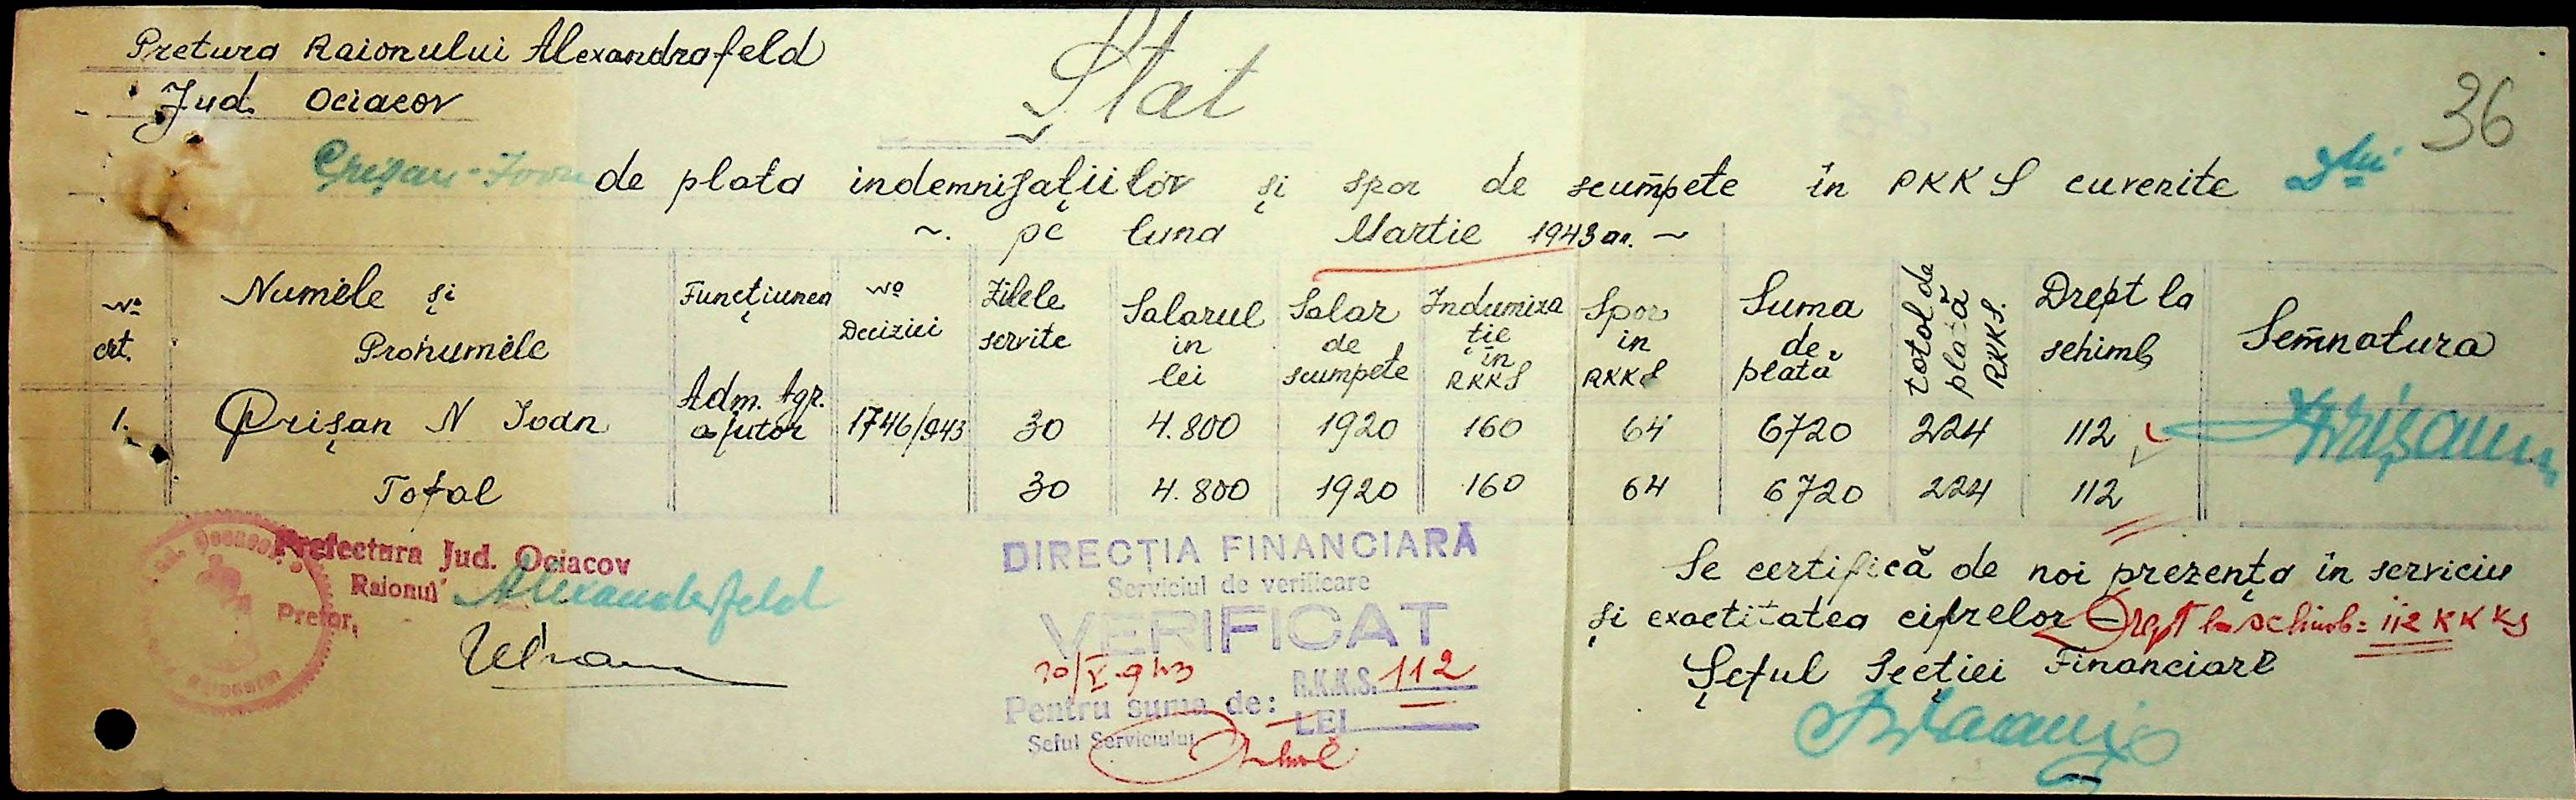 Pretura Raionului Alexandrafeld
Jud. Ociacov
Ștat
36
Crișan Ioan de plata indemnizațiilor și spor de scumpete în RKKS cuvenite Dlui
~. pe luna Martie 1943 an. ~
No crt. Numele și Pronumele Funcțiunea No Deciziei Zilele servite Salarul in lei Salar de scumpete Indemizatie în RKKS Spor in RKKS Suma de plată total de plată RKKS. Drept la schimb Semnatura
1. Crișan N Ioan Adm. Agr. ajutor 1746/943 30 4.800 1920 160 64 6720 224 112 Crișan
Total 30 4.800 1920 160 64 6720 224 112
Prefectura Jud. Ociacov
Raionul Alexanderfeld
Pretor,
DIRECȚIA FINANCIARĂ
Serviciul de verificare
VERIFICAT
30/V.943
Pentru suma de: R.K.K.S. 112
LEI
Seful Serviciului
Se certifică de noi prezența în serviciu
și exactitatea cifrelor – Drept la schimb = 112 RKKS
Șeful Secției Financiare